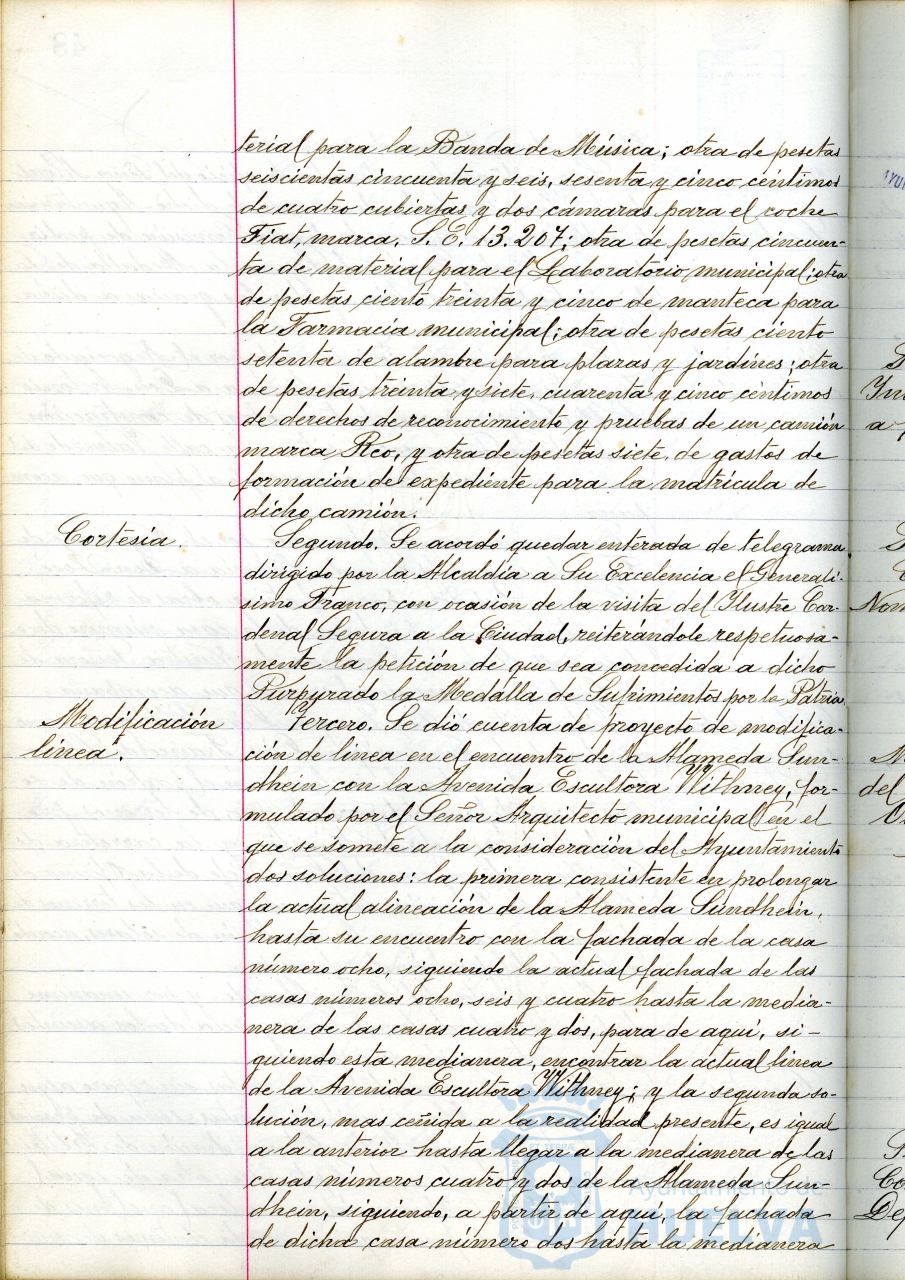 terial para la Banda de Música; otra de pesetas
seiscientas cincuenta y seis, sesenta y cinco céntimos
de cuatro cubiertas y dos cámaras para el coche
Fiat, marca. S. E. 13.207; otra de pesetas cincuen-
ta de material para el Laboratorio municipal; otra
de pesetas ciento treinta y cinco de manteca para
la Farmacia municipal; otra de pesetas ciento
setenta de alambre para plazas y jardines; otra
de pesetas treinta y siete, cuarenta y cinco céntimos
de derechos de reconocimiento y pruebas de un camión
marca Reo, y otra de pesetas siete, de gastos de
formación de expediente para la matrícula de
dicho camión.
Cortesía.
Segundo. Se acordó quedar enterada de telegrama
dirigido por la Alcaldía a Su Excelencia el Generalí-
simo Franco, con ocasión de la visita del Ilustre Car-
denal Segura a la Ciudad, reiterándole respetuosa-
mente la petición de que sea concedida a dicho
Purpurado la Medalla de Sufrimientos por la Patria.
Modificación
línea.
Tercero. Se dió cuenta de proyecto de modifica-
ción de línea en el encuentro de la Alameda Sun-
dhein con la Avenida Escultora Withney, for-
mulado por el Señor Arquitecto municipal en el
que se somete a la consideración del Ayuntamiento
dos soluciones: la primera consistente en prolongar
la actual alineación de la Alameda Sundhein,
hasta su encuentro con la fachada de la casa
número ocho, siguiendo la actual fachada de las
casas números ocho, seis y cuatro hasta la media-
nera de las casas cuatro y dos, para de aquí, si-
guiendo esta medianera, encontrar la actual línea
de la Avenida Escultora Withney; y la segunda so-
lución, mas ceñida a la realidad presente, es igual
a la anterior hasta llegar a la medianera de las
casas números cuatro y dos de la Alameda Sun-
dhein, siguiendo, a partir de aquí, la fachada
de dicha casa número dos hasta la medianera
Ayuntamiento de
HUELVA